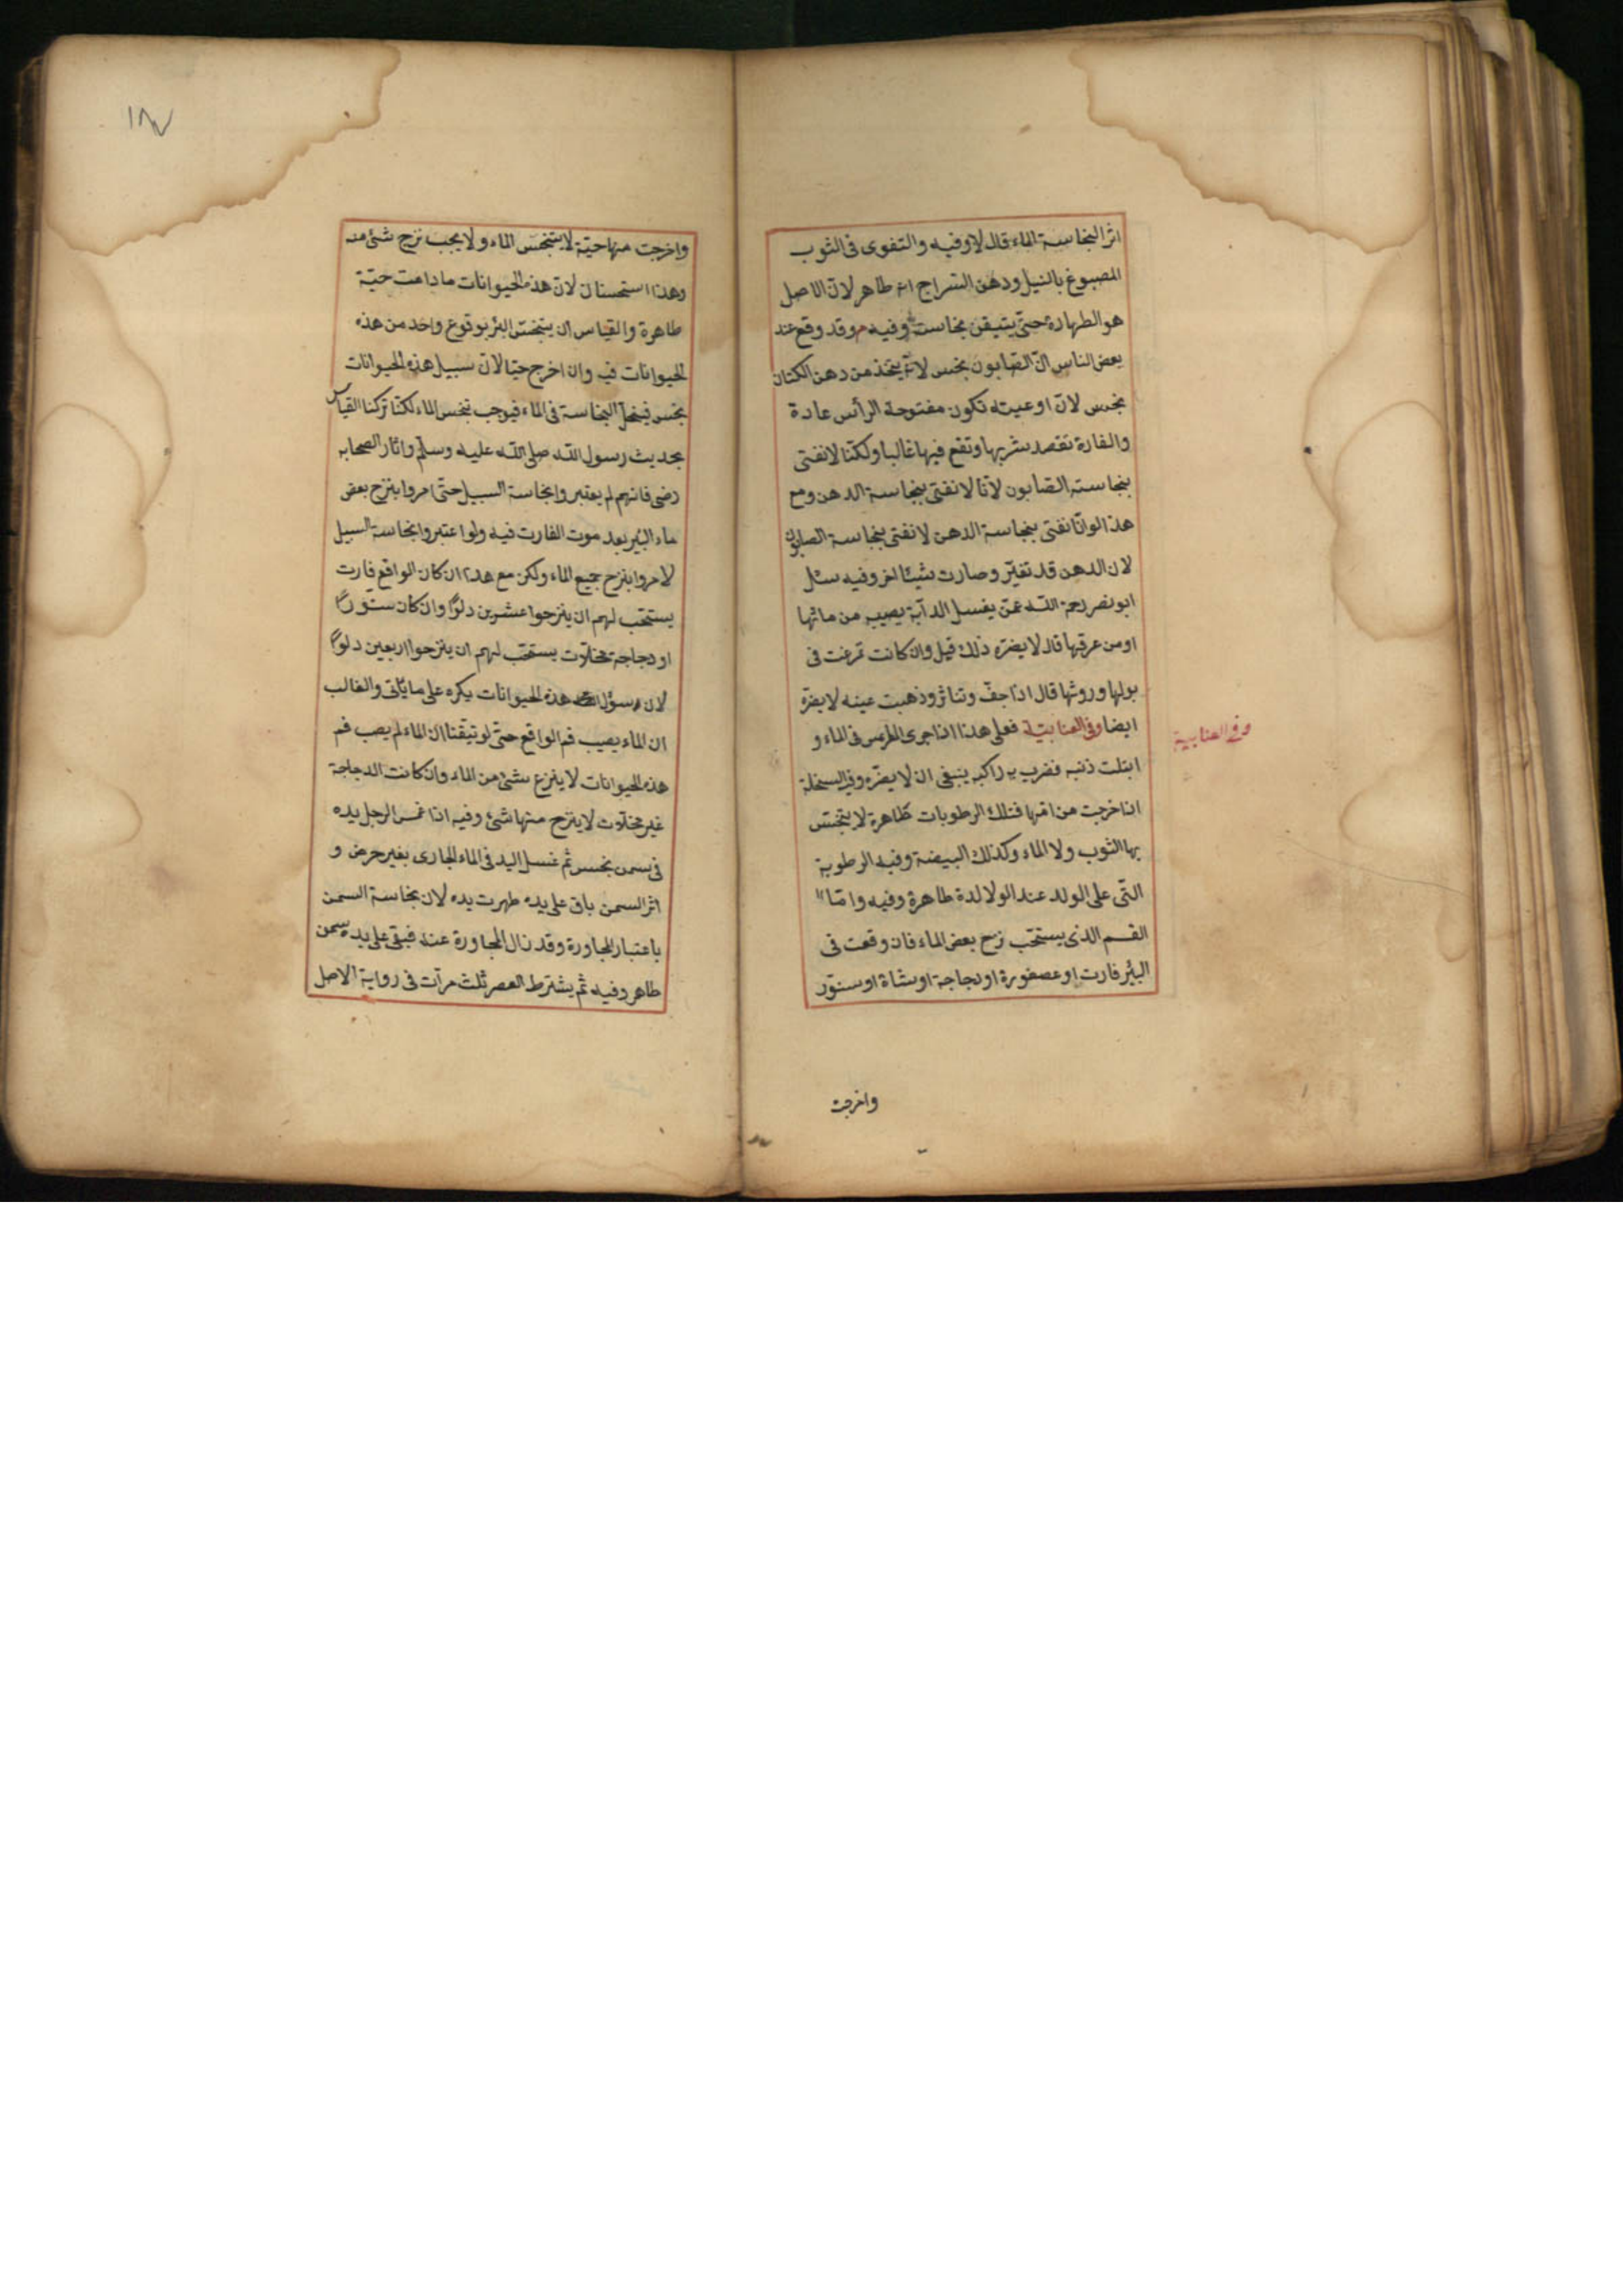 اثر النجاسة الماء قال لا وفيه والتفوى فى الثوب
المصبوغ بالنيل ودهن السراج انه طاهر لان الاصل
هو الطهارة حتى يتيقن نجاسته وفيه وقد وقع عند
بعض الناس ان الصابون نجس لانه يتخذ من دهن الكتان
نجس لان اوعيته تكون مفتوحة الرأس عادة
والفارة تقصد شربها وتقع فيها غالبا ولكنا لا نفتى
بنجاسته الصابون لانا لا نفتى بنجاسة الدهن ومع
هذا لو انا نفتى بنجاسة الدهن لا نفتى بنجاسة الصابون
لان الدهن قد تغير وصارت شيئا اخر وفيه سئل
ابو نصر رحمة الله عمن يغسل الدآبة يصيبه من مائها
او من عرقها قال لا يضره ذلك قيل وان كانت تمرغت فى
بولها وروثها قال اذا جف وتناثر وذهبت عينه لا يضره
ايضا وفى العتابية فعلى هذا اذا جرى الفرس فى الماء و
وفى العتابية
ابتلت ذنبه فضرب به راكبه ينبغى ان لا يضره وفى السخلة
اذا خرجت من امها فتلك الرطوبات طاهرة لا يتنجس
بها الثوب ولا الماء وكذلك البيضة وفيه الرطوبة
التى على الولد عند الولادة طاهرة وفيه واما
القسم الذى يستحب نزح بعض الماء فان وقعت فى
البئر فارت او عصفورة او دجاجة او شاة او سنور
واخرجت
١٨٧
واخرجت منها حية لا يتنجس الماء ولا يجب نزح شئ منه
وهذا استحسان لان هذه الحيوانات ما دامت حية
طاهرة والقياس ان يتنجس البئر بوقوع واحد من هذه
الحيوانات فيه وان اخرج حيا لان سبيل هذه الحيوانات
نجس فيتحل النجاسة فى الماء فيوجب تنجس الماء لكنا تركنا القياس
بحديث رسول الله صلى الله عليه وسلم واثار الصحابه
رضى فانهم لم يعتبروا نجاسة السبيل حتى امروا بنزح بعض
ماء البئر بعد موت الفارت فيه ولو اعتبروا نجاسة السبيل
لامروا بنزح جميع الماء ولكن مع هذا ان كان الواقع فارت
يستحب لهم ان ينزحوا عشرين دلوا وان كان سنورا
او دجاجة مخلات يستحب لهم ان ينزحوا اربعين دلوا
لان سؤر هذه الحيوانات يكره على ما يأتى والغالب
ان الماء يصيب فم الواقع حتى لو تيقنا ان الماء لم يصب فم
هذه الحيوانات لا ينزع شئ من الماء وان كانت الدجاجة
غير مخلات لا ينزح منها شئ وفيه اذا غمس الرجل يده
فى سمن نجس ثم غسل اليد فى الماء الجارى بغير حرض و
اثر السمن باق على يده طهرت يده لان نجاسة السمن
باعتبار المجاورة وقد زال المجاورة عنه فبقى على يده سمن
طاهر وفيه ثم يشترط العصر ثلث مرآت فى رواية الاصل